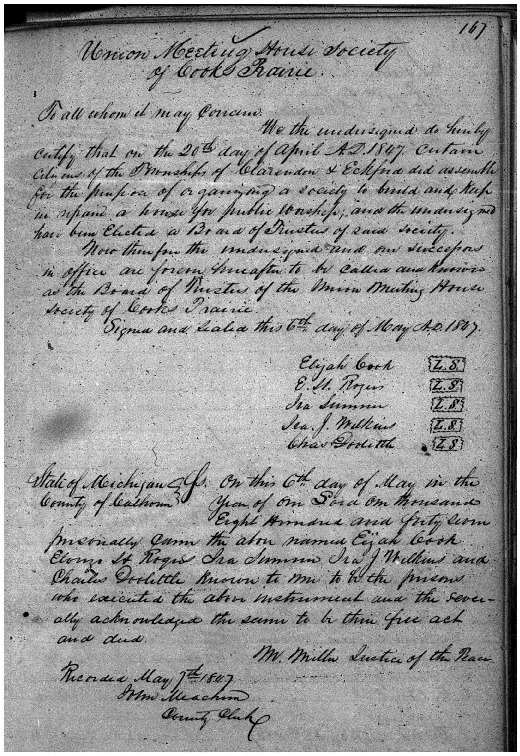 167
Union Meeting House Society
of Cooks Prairie.
To all whom it may Concern.
We the undersigned do hereby
certify that on the 20th day of April A.D. 1847. Certain
citizens of the Townships of Clarendon & Eckford did assemble
for the purpose of organizing a society to build and keep
in repair a house for public Worship, and the undersigned
have been Elected a Board of Trustees of said society.
Now therefore the undersigned and our successors
in office are forever hereafter to be called and known
as the Board of Trustees of the Union Meeting House
society of Cooks Prairie.
Signed and Sealed this 6th day of May A.D. 1847.
Elijah Cook L.S.
E. St. Rogers L.S.
Ira Sumner L.S.
Ira. J. Wilkins L.S.
Chas Doolittle L.S
State of Michigan } Ss. On this 6th day of May in the
County of Calhoun } Year of our Lord One thousand
Eight Hundred and forty seven
personally came the above named Elijah Cook
St Rogers Ira Sumner Ira J Wilkins and
Charles Doolittle known to me to be the persons
who executed the above instrument and the sever-
ally acknowledged the same to be their free act
and deed.
M. Miller Justice of the Peace
Recorded May 7th 1847
John Meachem
County Clerk